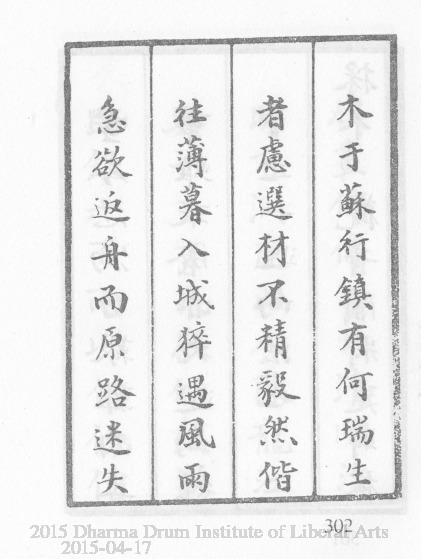 木于蘇行鎮有何瑞生
者慮選材不精毅然偕
往薄暮入城猝遇風雨
急欲返舟而原路迷失
302
2015 Dharma Drum Institute of Liberal Arts
2015-04-17